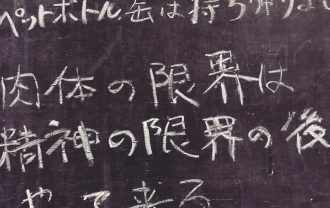 ペットボトル、缶は持ち帰りま
肉体の限界は
精神の限界の後
やって来る